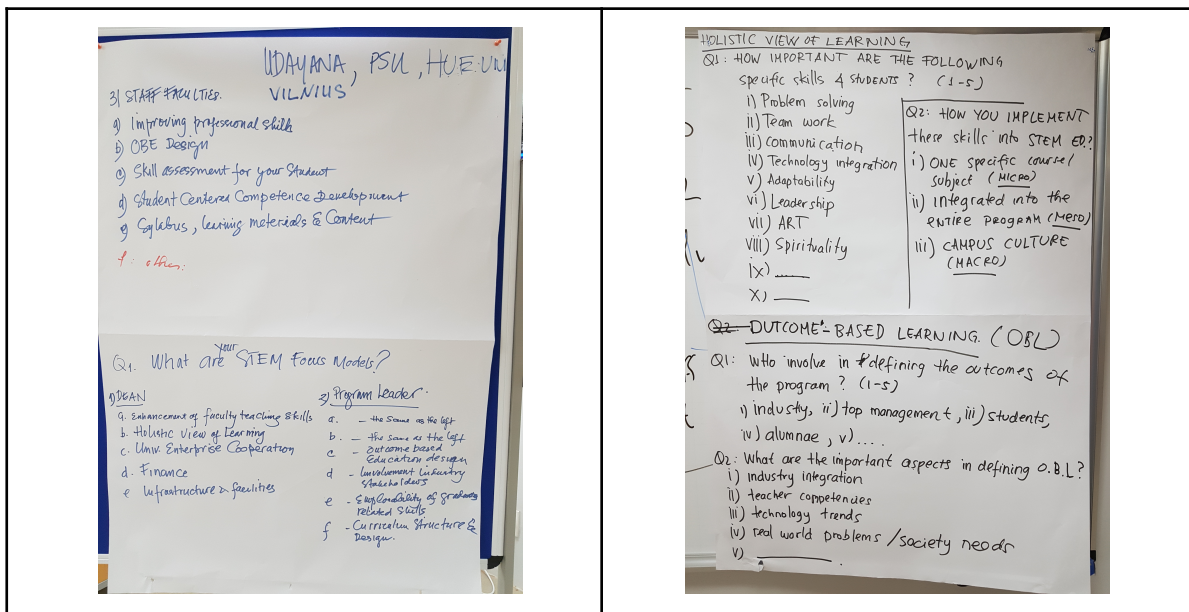 UDAYANA, PSU, HUE-UNI
VILNIUS
3) STAFF FACULTIES.
a) Improving professional skills
b) OBE Design
c) Skill assessment for your Student
d) Student Centered Competence Development
e) Sylabus, learning meterials & Content
f: others:
Q1. What are your STEM Focus Models?
1) DEAN
a. Enhancement of faculty teaching skills
b. Holistic View of Learning
c. Univ. Enterprise Cooperation
d. Finance
e Infrastructure & facilities
2) Program Leader.
a. - the same as the left
b. - the same as the left
c - outcome based
Education design
d - Involvement industry
Stakeholders
e - Employability of graduates
related skills
f - Curriculum Structure &
Design.
HOLISTIC VIEW OF LEARNING
Q1: HOW IMPORTANT ARE THE FOLLOWING
specific skills 4 STUDENTS? (1-5)
i) Problem solving
ii) Team work
iii) communication
iv) Technology integration
v) Adaptability
vi) Leadership
vii) ART
viii) Spirituality
ix) ____
x) ____
Q2: HOW YOU IMPLEMENT
these skills into STEM ED?
i) ONE specific course/
subject (MICRO)
ii) integrated into the
ENTIRE PROGRAM (MESO)
iii) CAMPUS CULTURE
(MACRO)
Q2 OUTCOME-BASED LEARNING (OBL)
Q1: Who involve in defining the outcomes of
the program? (1-5)
i) industry, ii) top management, iii) students,
iv) alumnae, v)....
Q2: What are the important aspects in defining O.B.L?
i) industry integration
ii) teacher competencies
iii) technology trends
iv) real world problems / society needs
v) ________.